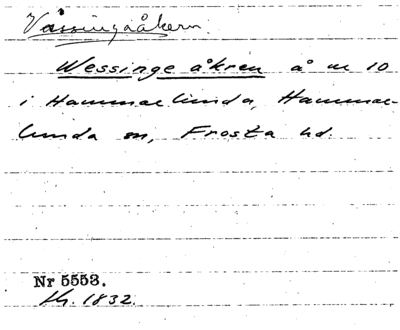 Vässingaåkern.
Wessinge åkren å nr 10
i Hammarlunda, Hammar-
lunda sn, Frosta hd.
Nr 5553.
th. 1832.